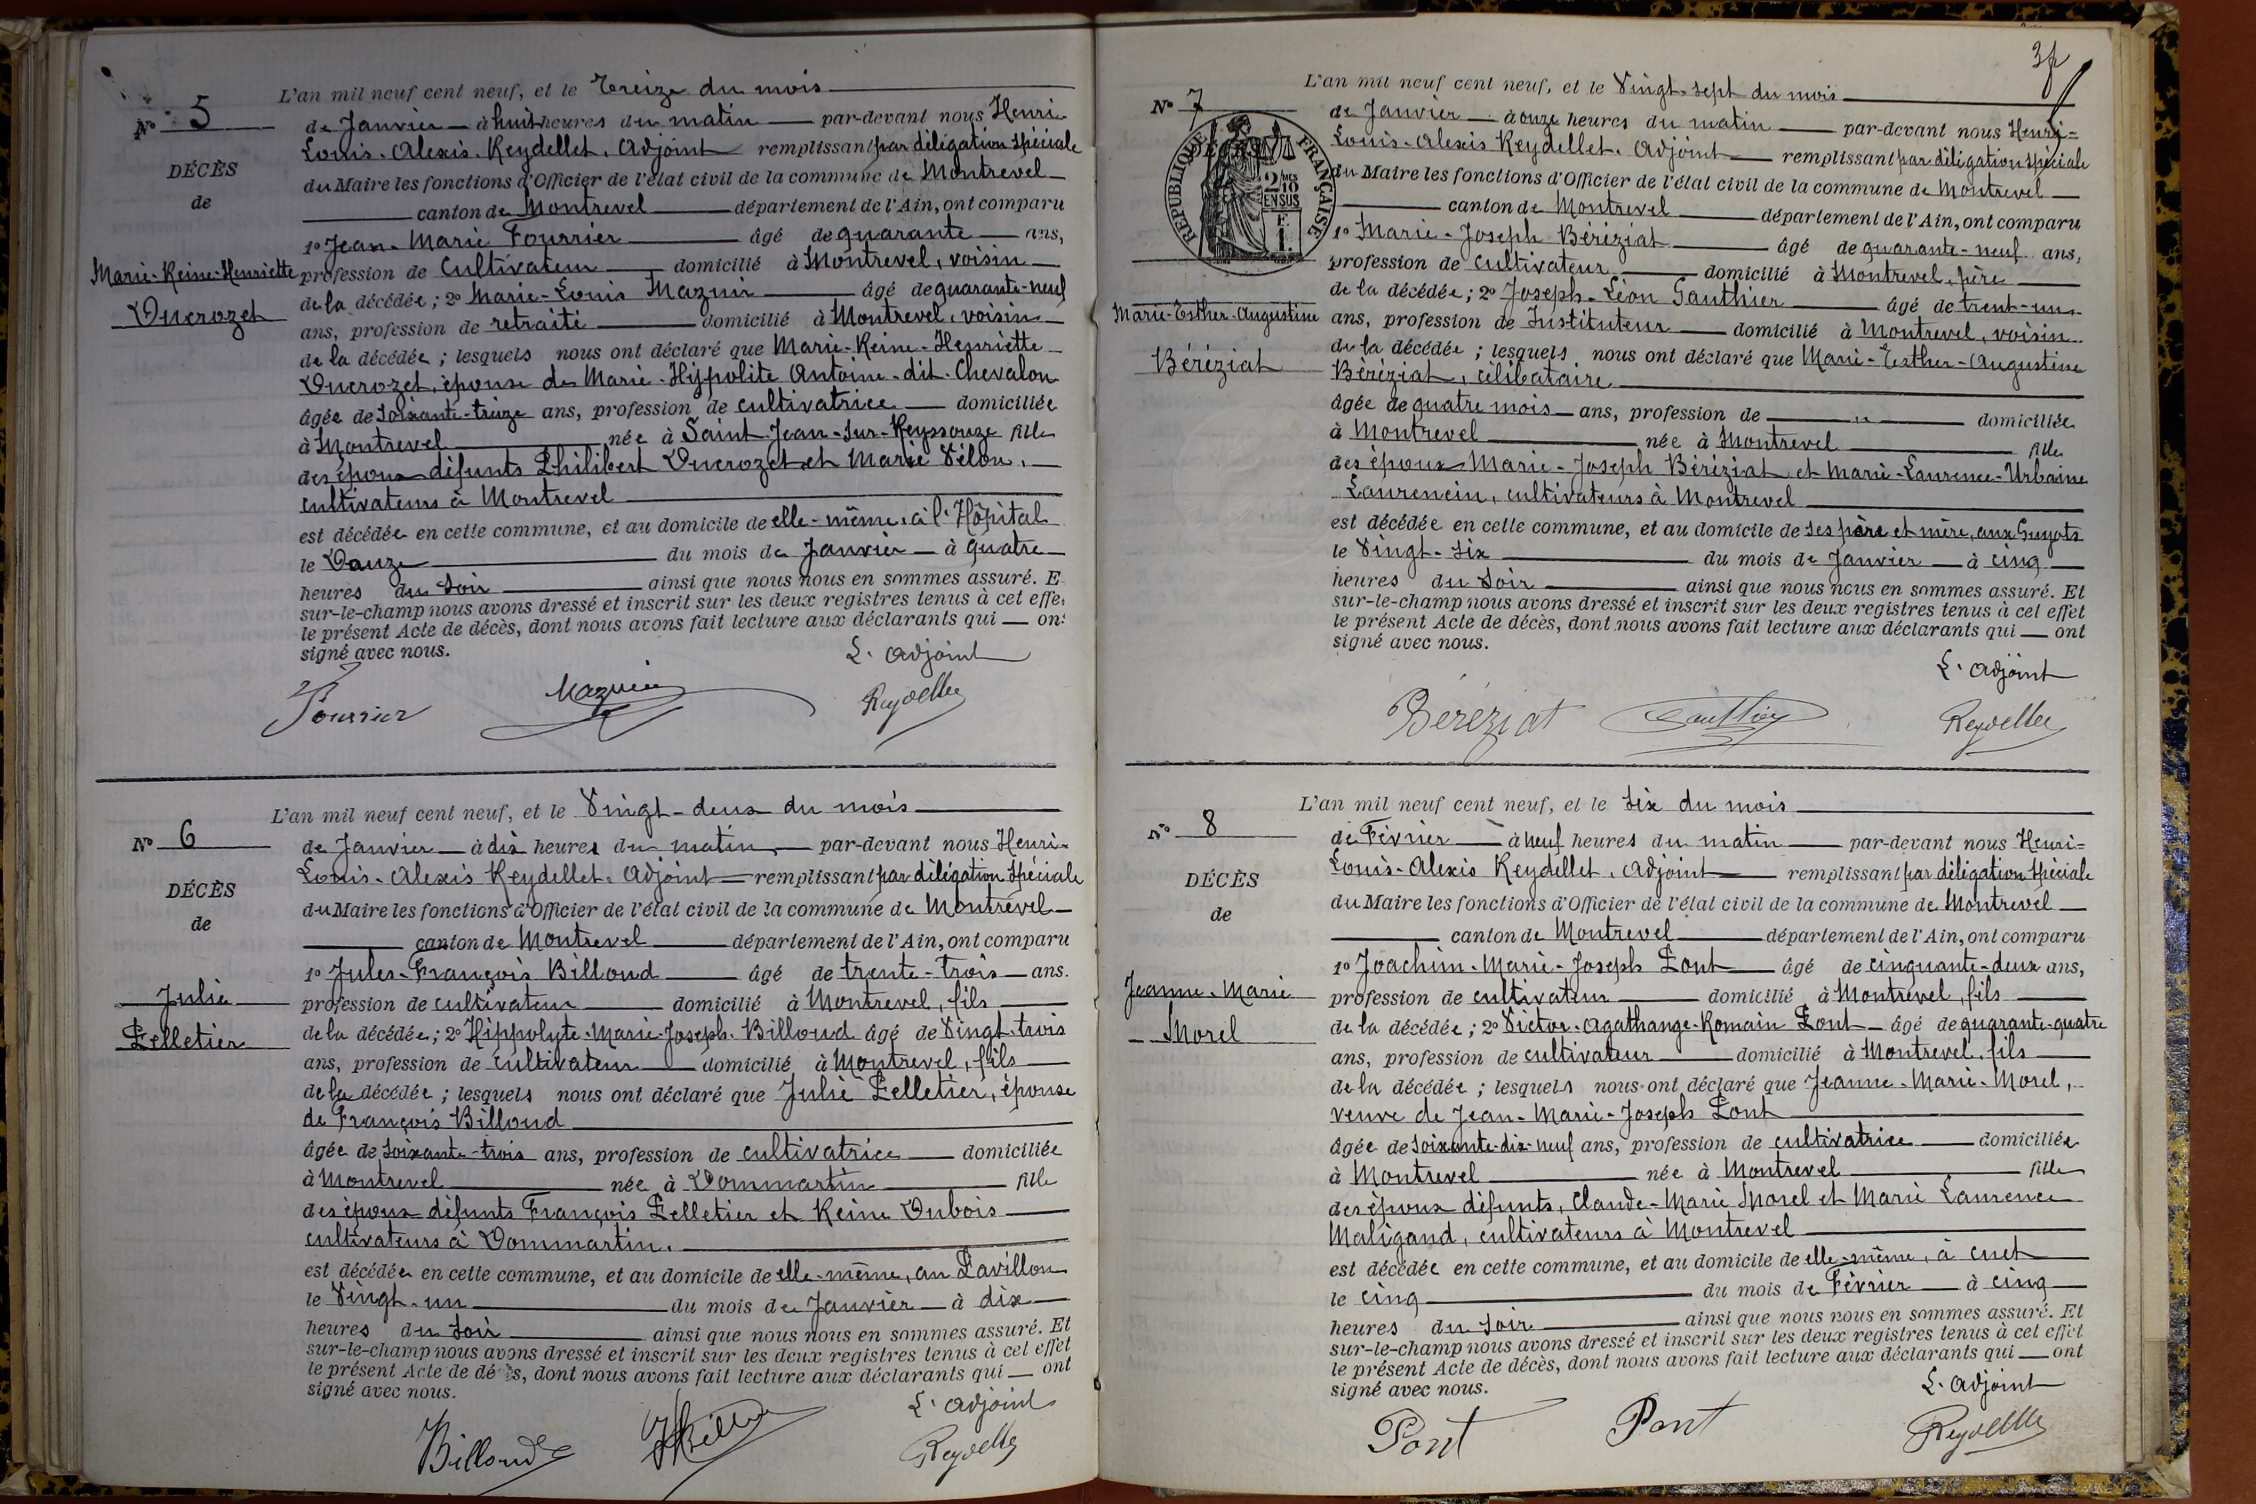 N° 5
DÉCÈS
de
Marie-Reine-Henriette
Ducrozet
L'an mil neuf cent neuf, et le Treize du mois
de Janvier à huit heures du matin par-devant nous Henri-
Louis-Alexis Reydellet, Adjoint remplissant par délégation spéciale
du Maire les fonctions d'Officier de l'état civil de la commune de Montrevel
canton de Montrevel département de l'Ain, ont comparu
1° Jean-Marie Fourrier âgé de quarante ans,
profession de cultivateur domicilié à Montrevel, voisin
de la décédée; 2° Marie-Louis Mazuir âgé de quarante-neuf
ans, profession de retraité domicilié à Montrevel, voisin
de la décédée; lesquels nous ont déclaré que Marie-Reine-Henriette
Ducrozet, épouse de Marie-Hypolite Antoine-dit-Chevalon
âgée de soixante-treize ans, profession de cultivatrice domiciliée
à Montrevel née à Saint-Jean-sur-Reyssouze fille
des époux défunts Philibert Ducrozet et Marie Vélon,
cultivateurs à Montrevel
est décédée en cette commune, et au domicile de elle-même, à l'Hôpital
le Douze du mois de Janvier à quatre
heures du soir ainsi que nous nous en sommes assuré. E
sur-le-champ nous avons dressé et inscrit sur les deux registres tenus à cet effe
le présent Acte de décès, dont nous avons fait lecture aux déclarants qui on
signé avec nous.
L'adjoint
Fourrier Mazuir Reydellet
N° 6
DÉCÈS
de
Julie
Pelletier
L'an mil neuf cent neuf, et le Vingt-deux du mois
de Janvier à dix heures du matin par-devant nous Henri-
Louis-Alexis Reydellet, Adjoint remplissant par délégation spéciale
du Maire les fonctions d'Officier de l'état civil de la commune de Montrevel
canton de Montrevel département de l'Ain, ont comparu
1° Jules-François Billoud âgé de trente-trois ans.
profession de cultivateur domicilié à Montrevel, fils
de la décédée; 2° Hippolyte-Marie-Joseph-Billoud âgé de Vingt-trois
ans, profession de cultivateur domicilié à Montrevel, fils
de la décédée; lesquels nous ont déclaré que Julie Pelletier, épouse
de François Billoud
âgée de soixante-trois ans, profession de cultivatrice domiciliée
à Montrevel née à Dommartin fille
des époux défunts François Pelletier et Reine Dubois
cultivateurs à Dommartin.
est décédée en cette commune, et au domicile de elle-même, au Pavillon
le Vingt-un du mois de Janvier à dix
heures du soir ainsi que nous nous en sommes assuré. Et
sur-le-champ nous avons dressé et inscrit sur les deux registres tenus à cet effet
le présent Acte de décès, dont nous avons fait lecture aux déclarants qui ont
signé avec nous.
L'adjoint
Billoud Reydellet
3
N° 7
RÉPUBLIQUE FRANÇAISE
2/10 EN SUS
Marie-Esther-Augustine
Béréziat
L'an mil neuf cent neuf, et le Vingt-sept du mois
de Janvier à onze heures du matin par-devant nous Henri-
Louis-Alexis Reydellet, Adjoint remplissant par délégation spéciale
du Maire les fonctions d'Officier de l'état civil de la commune de Montrevel
canton de Montrevel département de l'Ain, ont comparu
1° Marie-Joseph Béréziat âgé de quarante-neuf ans,
profession de cultivateur domicilié à Montrevel, père
de la décédée; 2° Joseph-Léon Gauthier âgé de trent-un
ans, profession de Instituteur domicilié à Montrevel, voisin
de la décédée; lesquels nous ont déclaré que Marie-Esther-Augustine
Béréziat, célibataire
âgée de quatre mois ans, profession de " domiciliée
à Montrevel née à Montrevel fille
des époux Marie-Joseph Béréziat et Marie-Laurence-Urbaine
Laurencin, cultivateurs à Montrevel
est décédée en cette commune, et au domicile de ses père et mère, aux Guyots
le Vingt-six du mois de Janvier à cinq
heures du soir ainsi que nous nous en sommes assuré. Et
sur-le-champ nous avons dressé et inscrit sur les deux registres tenus à cet effet
le présent Acte de décès, dont nous avons fait lecture aux déclarants qui ont
signé avec nous.
L'adjoint
Béréziat Gauthier Reydellet
N° 8
DÉCÈS
de
Jeanne-Marie
Morel
L'an mil neuf cent neuf, et le six du mois
de Février à neuf heures du matin par-devant nous Henri-
Louis-Alexis Reydellet, Adjoint remplissant par délégation spéciale
du Maire les fonctions d'Officier de l'état civil de la commune de Montrevel
canton de Montrevel département de l'Ain, ont comparu
1° Joachim-Marie-Joseph Pont âgé de cinquante-deux ans,
profession de cultivateur domicilié à Montrevel, fils
de la décédée; 2° Victor-Agathange-Romain Pont âgé de quarante-quatre
ans, profession de cultivateur domicilié à Montrevel, fils
de la décédée; lesquels nous ont déclaré que Jeanne-Marie-Morel,
veuve de Jean-Marie-Joseph Pont
âgée de soixante-dix-neuf ans, profession de cultivatrice domiciliée
à Montrevel née à Montrevel fille
des époux défunts, Claude-Marie Morel et Marie Laurence
Maligand, cultivateurs à Montrevel
est décédée en cette commune, et au domicile de elle-même, à Cuet
le cinq du mois de Février à cinq
heures du soir ainsi que nous nous en sommes assuré. Et
sur-le-champ nous avons dressé et inscrit sur les deux registres tenus à cet effet
le présent Acte de décès, dont nous avons fait lecture aux déclarants qui ont
signé avec nous.
L'adjoint
Pont Pont Reydellet